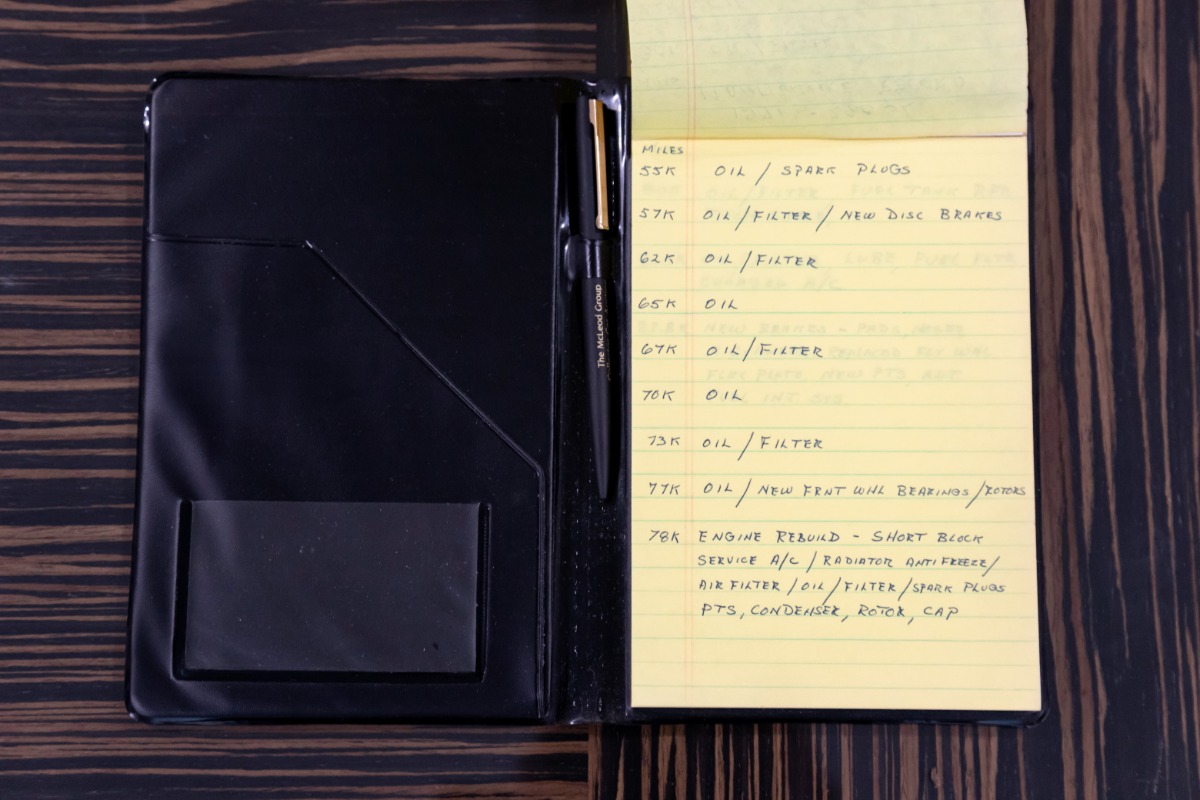 MILES
55K OIL / SPARK PLUGS
57K OIL/FILTER/NEW DISC BRAKES
62K OIL/FILTER
65K OIL
67K OIL/FILTER
70K OIL
73K OIL/FILTER
77K OIL/NEW FRNT WHL BEARINGS/ROTORS
78K ENGINE REBUILD - SHORT BLOCK
SERVICE A/C / RADIATOR ANTIFREEZE/
AIR FILTER/OIL/FILTER/SPARK PLUGS
PTS, CONDENSER, ROTOR, CAP
The McLeod Group